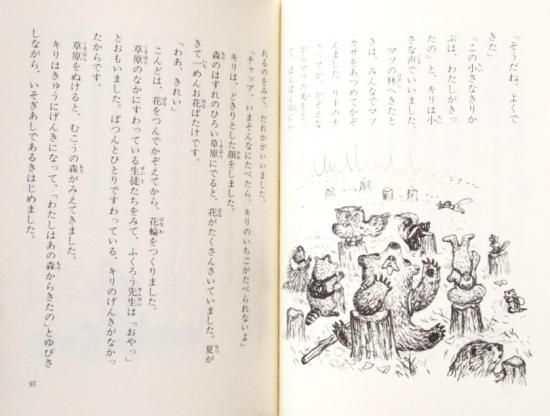 「そうだね。よくで
きた」
「この小さなきりか
ぶは、わたしがきっ
たの」と、キリは小
さな声でいいました。
マツの林へきたと
きは、みんなでマツ
カサをあつめてかぞ
えました。りすのチ
ャップが、かぞえな
がらマツの実を
れるのをみて、だれかがいいました。
「チャップ、いまそんなにたべたら、キリのいちごがたべられないよ」
キリは、どきりとした顔をしました。
森のはずれのひろい草原にでると、花がたくさんさいていました。夏が
きて一めんお花ばたけです。
「わあ、きれい」
こんどは、花をつんでかぞえてから、花輪をつくりました。
草原のなかにすわっている生徒たちをみて、ふくろう先生は「おやっ」
とおもいました。ぽつんとひとりですわっている、キリのげんきがなかっ
たからです。
草原をぬけると、むこうの森がみえてきました。
キリはきゅうにげんきになって、「わたしはあの森からきたの」とゆびさ
しながら、いそぎあしであるきはじめました。
97